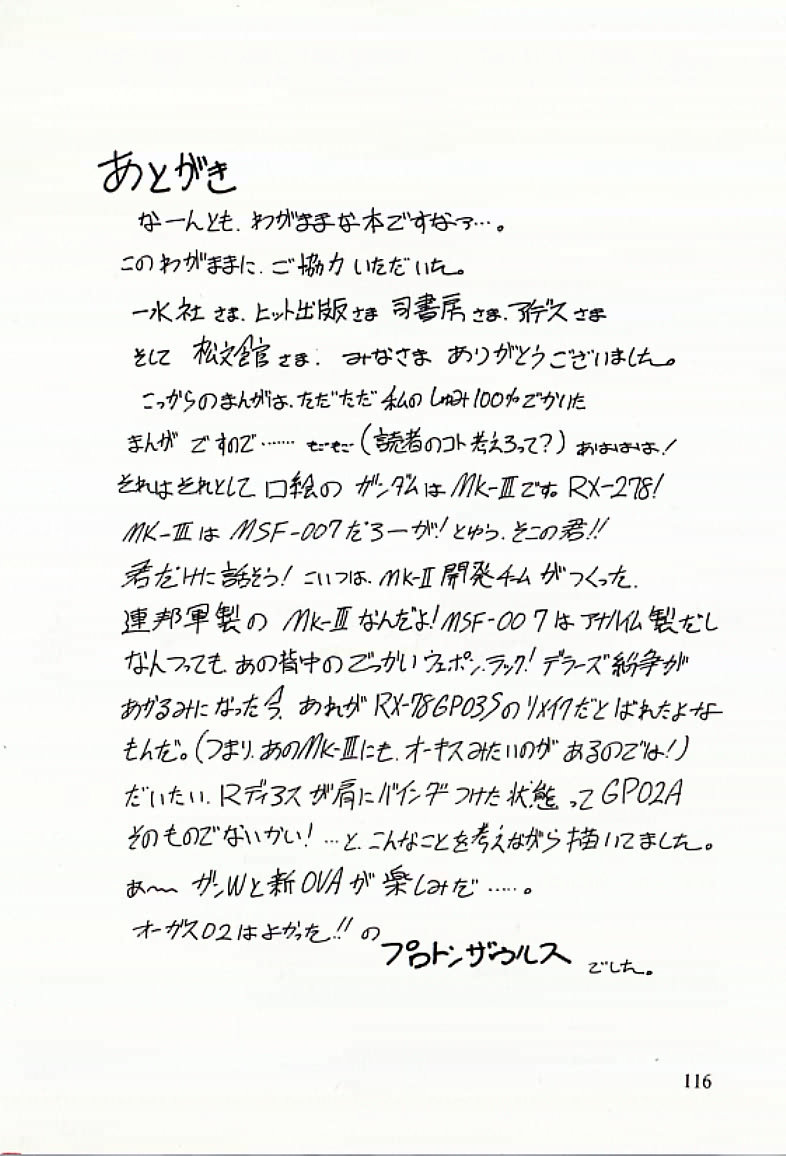 あとがき
なーんとも、わがままな本ですなァ…。
このわがままに、ご協力いただいた。
一水社さま、ヒット出版さま 司書房さま、アイデスさま
そして 松文館さま、みなさま ありがとうございました。
こっからのまんがは、ただただ 私の しゅみ100%でかいた
まんが ですので…… もごもご(読者のコト考えろって?) あははは!
それはそれとして 口絵の ガンダムは Mk-Ⅲです。RX-278!
MK-Ⅲは MSF-007だろーが!とゆう、そこの君!!
君だけに話そう! こいつは、Mk-Ⅱ開発チームがつくった、
連邦軍製の Mk-Ⅲなんだよ!MSF-007はアナハイム製だし
なんつっても、あの背中のでっかいウェポン、ラック! デラーズ紛争が
あかるみになった今、あれがRX-78GP03Sのリメイクだとばれたよーな
もんだ。(つまり、あのMk-Ⅲにも、オーキスみたいのがあるのでは!)
だいたい、Rディアスが肩にバインダつけた状態ってGP02A
そのものでないかい! …と、こんなことを考えながら描いてました。
あ〜 ガンWと新OVAが楽しみだ……。
オーガス02はよかった!! の
プロトンザウルス でした。
116